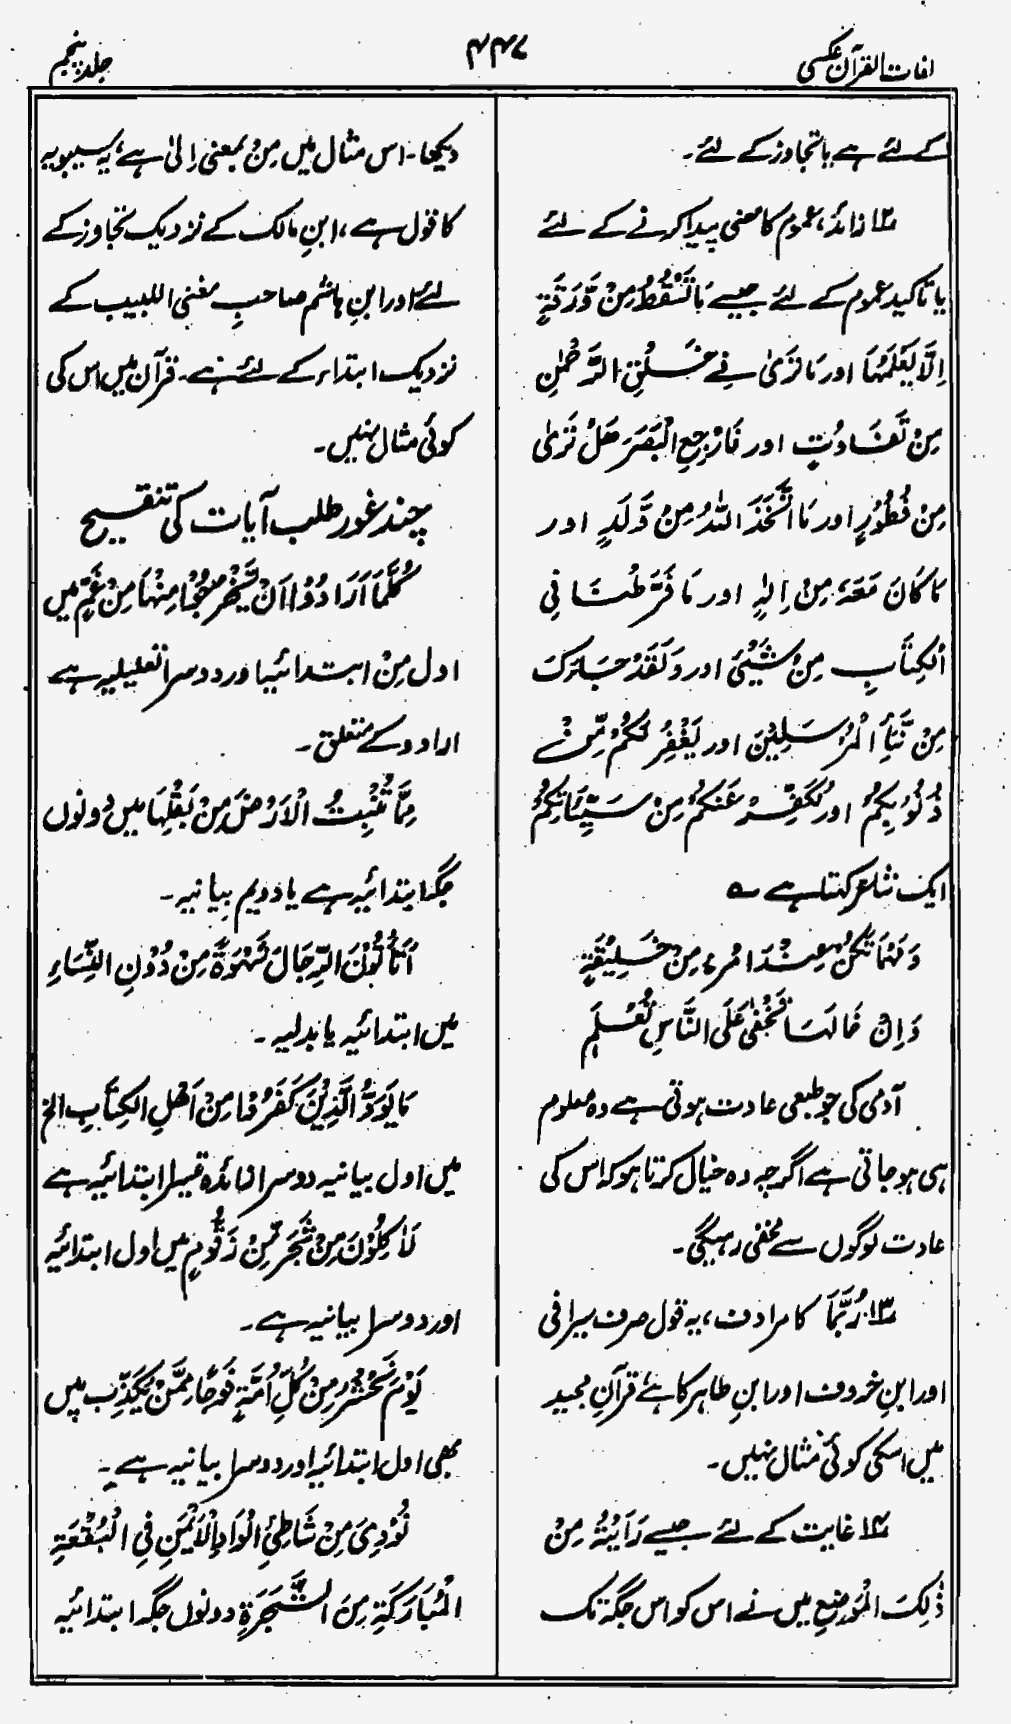 لغات القرآن عکسی
۴۴۷
جلد پنجم
کے لئے ہے یا تجاوز کے لئے۔
۱۲ زائد، عموم کا معنی پیدا کرنے کے لئے
یا تاکید عموم کے لئے جیسے مَا تَسْقُطُ مِنْ وَّرَقَةٍ
اِلَّا یَعْلَمُهَا اور مَا تَرٰی فِیْ خَلْقِ الرَّحْمٰنِ
مِنْ تَفَاوُتٍ اور فَارْجِعِ الْبَصَرَ هَلْ تَرٰی
مِنْ فُطُوْرٍ اور مَا اتَّخَذَ اللّٰہُ مِنْ وَّلَدٍ اور
مَا کَانَ مَعَهٗ مِنْ اِلٰهٍ اور مَا فَرَّطْنَا فِی
الْکِتَابِ مِنْ شَیْئٍ اور وَلَقَدْ جَاءَکَ
مِنْ نَّبَأِ الْمُرْسَلِیْنَ اور یَغْفِرْ لَکُمْ مِّنْ
ذُنُوْبِکُمْ اور یُکَفِّرْ عَنْکُمْ مِنْ سَیِّئَاتِکُمْ
ایک شاعر کہتا ہے ؎
وَمَهْمَا تَکُنْ عِنْدَ امْرِءٍ مِنْ خَلِیْقَةٍ
وَاِنْ خَالَهَا تَخْفٰی عَلَی النَّاسِ تُعْلَمِ
آدمی کی جو طبعی عادت ہوتی ہے وہ معلوم
ہی ہو جاتی ہے اگرچہ وہ خیال کرتا ہو کہ اس کی
عادت لوگوں سے مخفی رہیگی۔
۱۳ رُبَّمَا کا مرادف، یہ قول صرف سیرافی
اور ابنِ خروف اور ابنِ طاہر کا ہے قرآنِ مجید
میں اسکی کوئی مثال نہیں۔
۱۴ غایت کے لئے جیسے رَاَیْتُهٗ مِنْ
ذٰلِکَ الْمَوْضِعِ میں نے اس کو اس جگہ تک
دیکھا۔ اس مثال میں مِنْ بمعنی اِلٰی ہے، یہ سیبویہ
کا قول ہے، ابنِ مالک کے نزدیک تجاوز کے
لئے اور ابنِ ہاشم صاحبِ مغنی اللبیب کے
نزدیک ابتداء کے لئے ہے۔ قرآن میں اس کی
کوئی مثال نہیں۔
چند غور طلب آیات کی تنقیح
کُلَّمَا اَرَادُوْا اَنْ یَّخْرُجُوْا مِنْهَا مِنْ غَمٍّ میں
اول مِنْ ابتدائیہ اور دوسرا تعلیلیہ ہے
ارادو کے متعلق۔
مِمَّا تُنْبِتُ الْاَرْضُ مِنْ بَقْلِهَا میں دونوں
جگہ ابتدائیہ ہے یا دویم بیانیہ۔
اَتَأْتُوْنَ الرِّجَالَ شَهْوَةً مِنْ دُوْنِ النِّسَاءِ
میں ابتدائیہ یا بدلیہ۔
مَا یَوَدُّ الَّذِیْنَ کَفَرُوْا مِنْ اَهْلِ الْکِتَابِ الخ
میں اول بیانیہ دوسرا زائدہ تیسرا ابتدائیہ ہے
لَاٰکِلُوْنَ مِنْ شَجَرٍ مِّنْ زَقُّوْمٍ میں اول ابتدائیہ
اور دوسرا بیانیہ ہے۔
یَوْمَ نَحْشُرُ مِنْ کُلِّ اُمَّةٍ فَوْجًا مِمَّنْ یُکَذِّبُ میں
بھی اول ابتدائیہ اور دوسرا بیانیہ ہے۔
نُوْدِیَ مِنْ شَاطِئِ الْوَادِ الْاَیْمَنِ فِی الْبُقْعَةِ
الْمُبَارَکَةِ مِنَ الشَّجَرَةِ دونوں جگہ ابتدائیہ